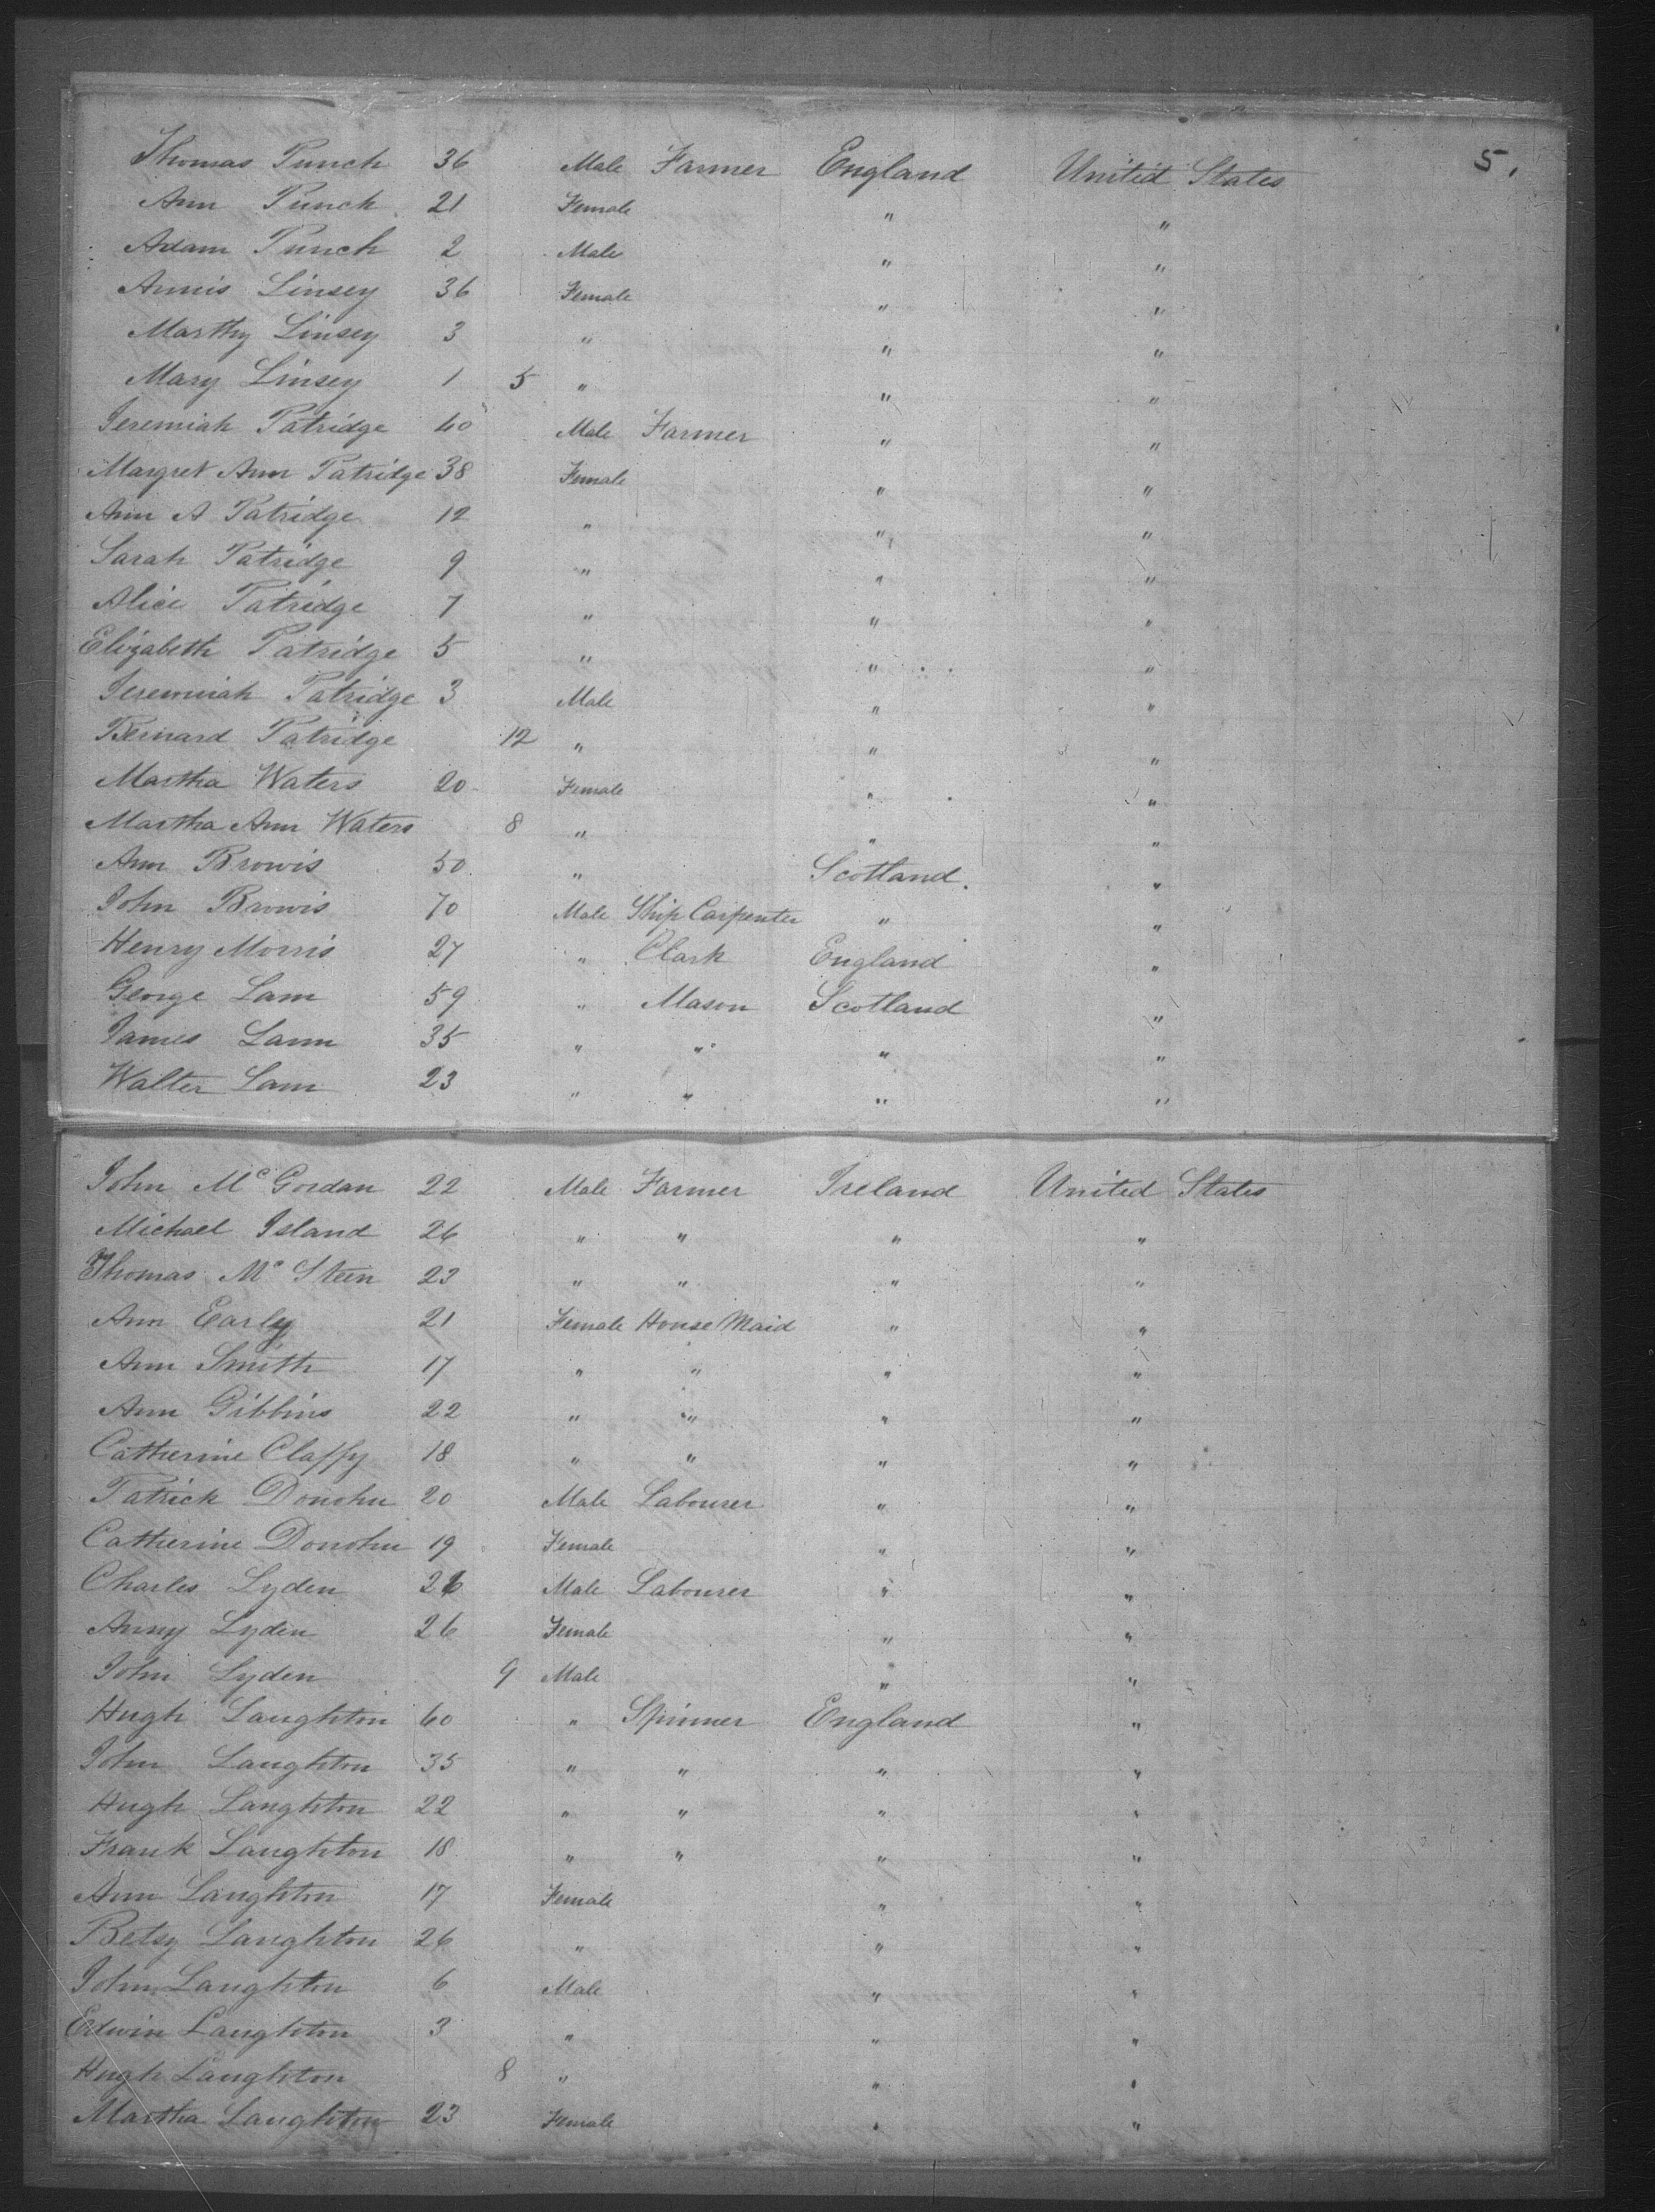 Thomas Punch 36 Male Farmer England United States 5.
Ann Punch 21 Female " "
Adam Punch 2 Male " "
Annis Linsey 36 Female " "
Marthy Linsey 3 " " "
Mary Linsey 1 5 " " "
Jeremiah Patridge 40 Male Farmer " "
Margret Ann Patridge 38 Female " "
Ann A Patridge 12 " " "
Sarah Patridge 9 " " "
Alice Patridge 7 " " "
Elizabeth Patridge 5 " " "
Jeremiah Patridge 3 Male " "
Bernard Patridge 12 " " "
Martha Waters 20 Female " "
Martha Ann Waters 8 " " "
Ann Browis 50 " Scotland. "
John Browis 70 Male Ship Carpenter " "
Henry Morris 27 " Clark England "
George Lam 59 " Mason Scotland "
James Lamm 35 " " " "
Walter Lam 23 " " " "
John McGordan 22 Male Farmer Ireland United States
Michael Island 26 " " " "
Thomas McSteen 23 " " " "
Ann Early 21 Female House Maid " "
Ann Smith 17 " " " "
Ann Gibbins 22 " " " "
Catherine Claffy 18 " " " "
Patrick Donohu 20 Male Labourer " "
Catherine Donohu 19 Female " "
Charles Lyden 26 Male Labourer " "
Anny Lyden 26 Female " "
John Lyden 9 Male " "
Hugh Laughton 60 " Spinner England "
John Laughton 35 " " " "
Hugh Laughton 22 " " " "
Frank Laughton 18 " " " "
Ann Laughton 17 Female " "
Betsy Laughton 26 " " "
John Laughton 6 Male " "
Edwin Laughton 3 " " "
Hugh Laughton 8 " " "
Martha Laughton 23 Female " "